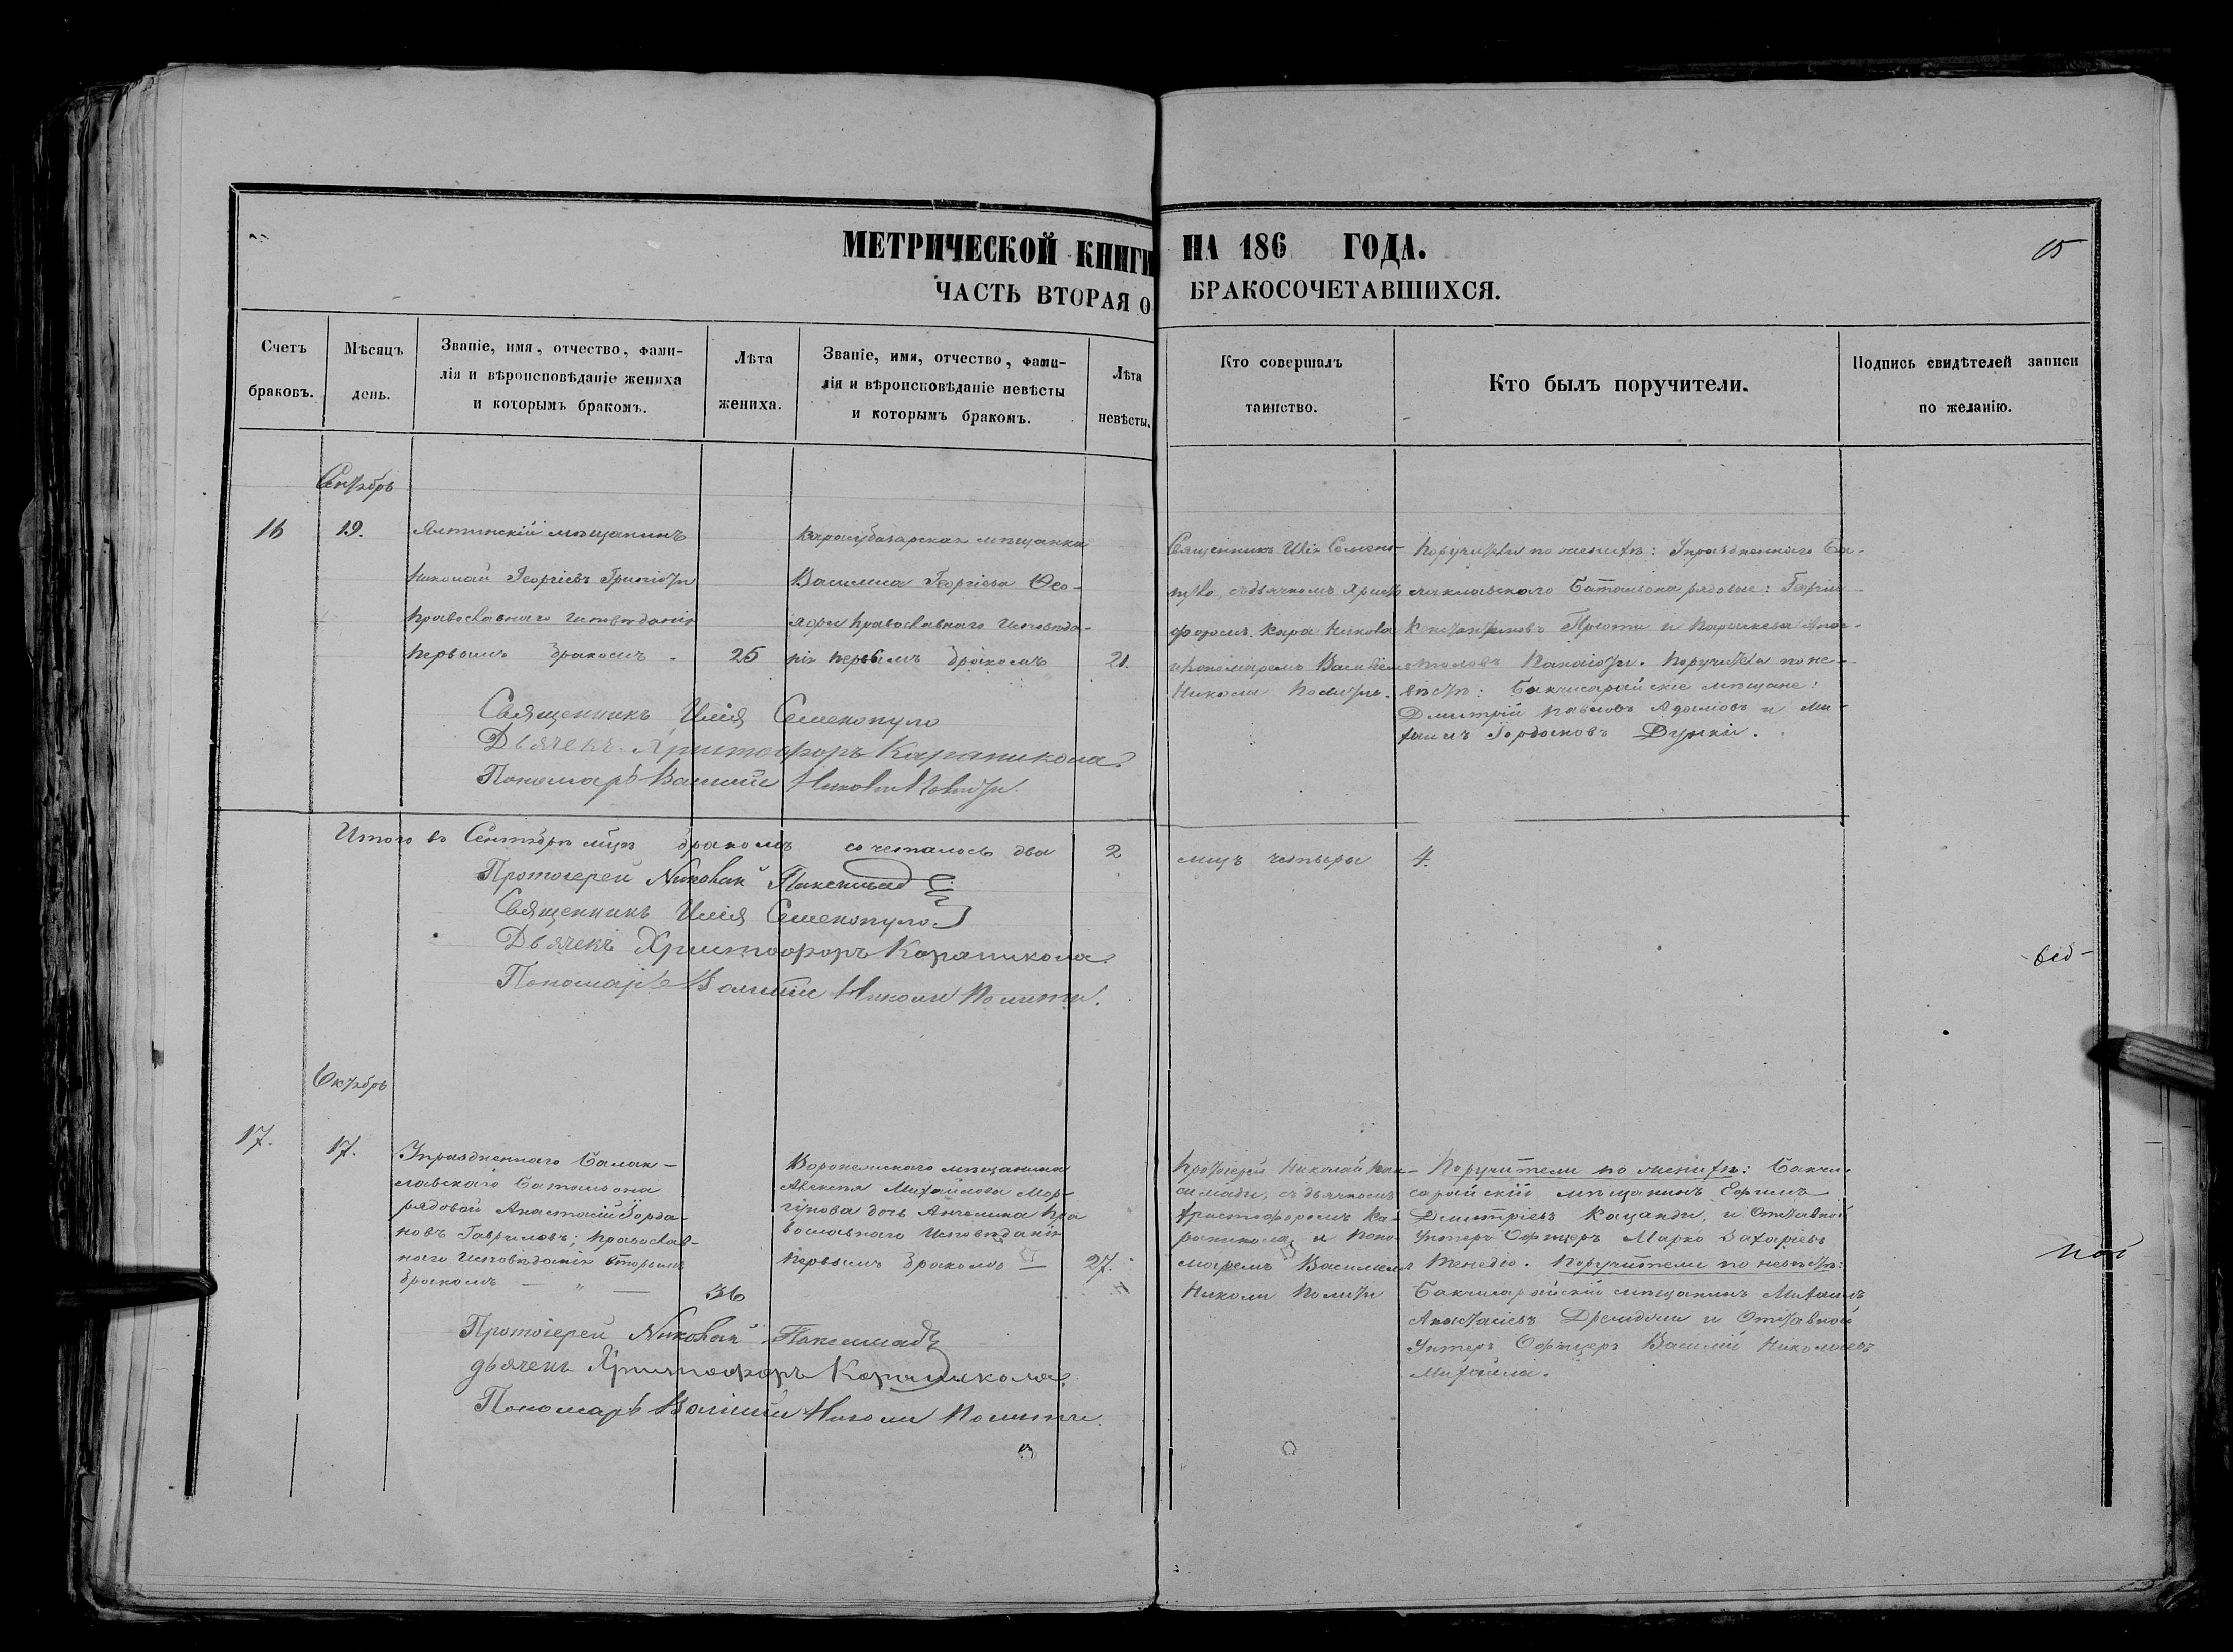 МЕТРИЧЕСКОЙ КНИГИ НА 186 ГОДА.
15
ЧАСТЬ ВТОРАЯ О БРАКОСОЧЕТАВШИХСЯ.
Счетъ браковъ.
Мѣсяцъ день.
Званіе, имя, отчество, фами-
лія и вѣроисповѣданіе жениха
и которымъ бракомъ.
Лѣта жениха.
Званіе, имя, отчество, фами-
лія и вѣроисповѣданіе невѣсты
и которымъ бракомъ.
Лѣта невѣсты.
Кто совершалъ таинство.
Кто былъ поручители.
Подпись свидѣтелей записи
по желанію.
Сентябрь
16
19.
Ялтинскій мѣщанинъ
Николай Георгіевъ
православнаго исповѣданія
первымъ бракомъ.
25
Карасубазарская мѣщанка
Василиса Георгіева Ѳео-
православнаго исповѣда-
нія первымъ бракомъ
21.
Священникъ Илія Семено-
пуло, съ дьячкомъ Христо
форомъ Кара Никола
и пономаремъ Василіемъ
Николи Полити.
Поручители по женихѣ: Упраздненнаго Ба-
лаклавскаго баталіона рядовые: Георгій
Константиновъ и Параскева Апос-
толовъ Панаіоти. Поручители по не-
вѣстѣ: Бакчисарайскіе мѣщане:
Дмитрій Павловъ Адамовъ и Ми-
хаилъ Іордановъ
Священникъ Илія Семенопуло
Дьячекъ Христофоръ Караникола.
Пономарь Василій Николи Полити.
Итого въ Сентябрѣ мцѣ бракомъ сочеталось два 2 лицъ четыре 4.
Протоіерей Николай Паксимад
Священникъ Илія Семенопуло.
Дьячекъ Христофоръ Караникола.
Пономарь Василій Николи Полити.
Октябрь
17.
17.
Упраздненнаго Балак-
лавскаго баталіона
рядовой Анастасій Іорда-
новъ Гавриловъ; православ-
наго исповѣданія вторымъ
бракомъ — " —
36
Воронежскаго мѣщанина
Алексѣя Михайлова Мор-
гунова дочь Ангелина пра
вославнаго исповѣданія
первымъ бракомъ —
27.
Протоіерей Николай Пак-
симади, съ дьячкомъ
Христофоромъ Ка-
раникола и поно-
маремъ Василіемъ
Николи Полити
Поручители по женихѣ: Бакчи-
сарайскій мѣщанинъ
Дмитріевъ Кацанди, и Отставной
Унтеръ Офицеръ Марко Захаріевъ
Тенедіо. Поручители по невѣстѣ:
Бакчисарайскій мѣщанинъ Михаилъ
Анастасіевъ и Отставной
Унтеръ Офицеръ Василій Николаевъ
Михайли.
Протоіерей Николай Паксимад
дьячекъ Христофоръ Караникола.
Пономарь Василій Николи Полити.